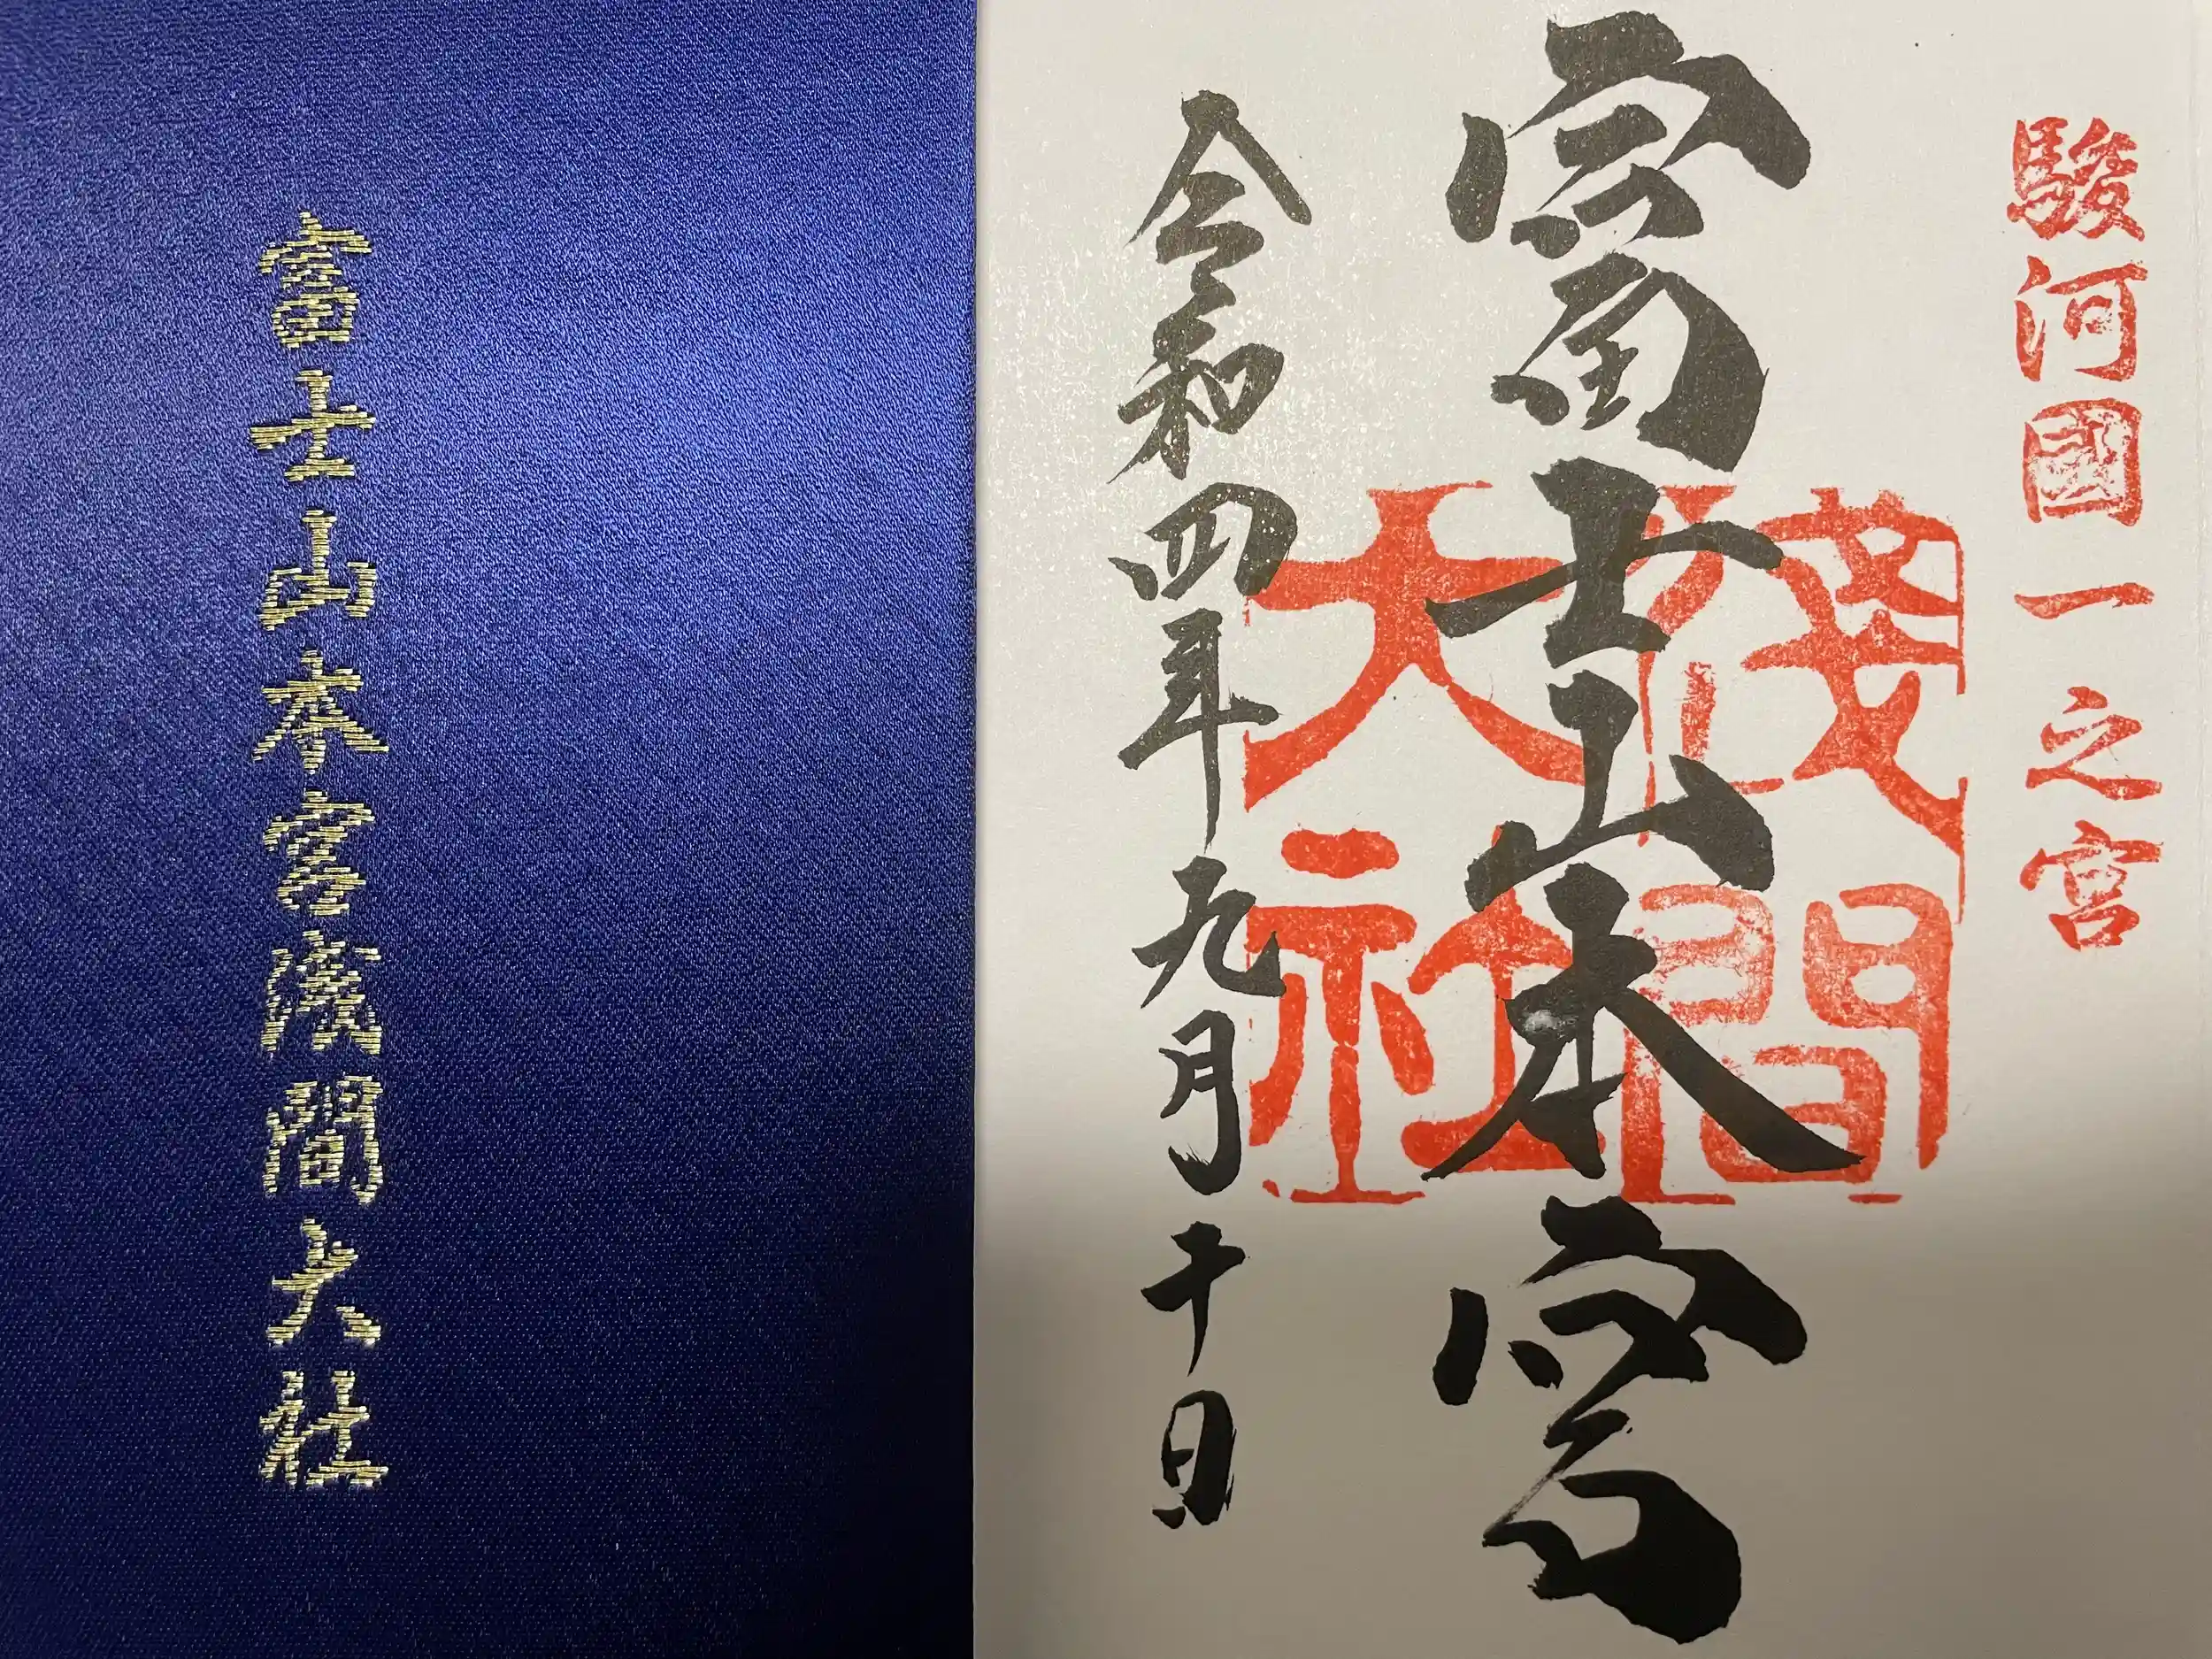 駿河國一之宮
富士山本宮
淺間大社
令和四年九月十日
富士山本宮浅間大社